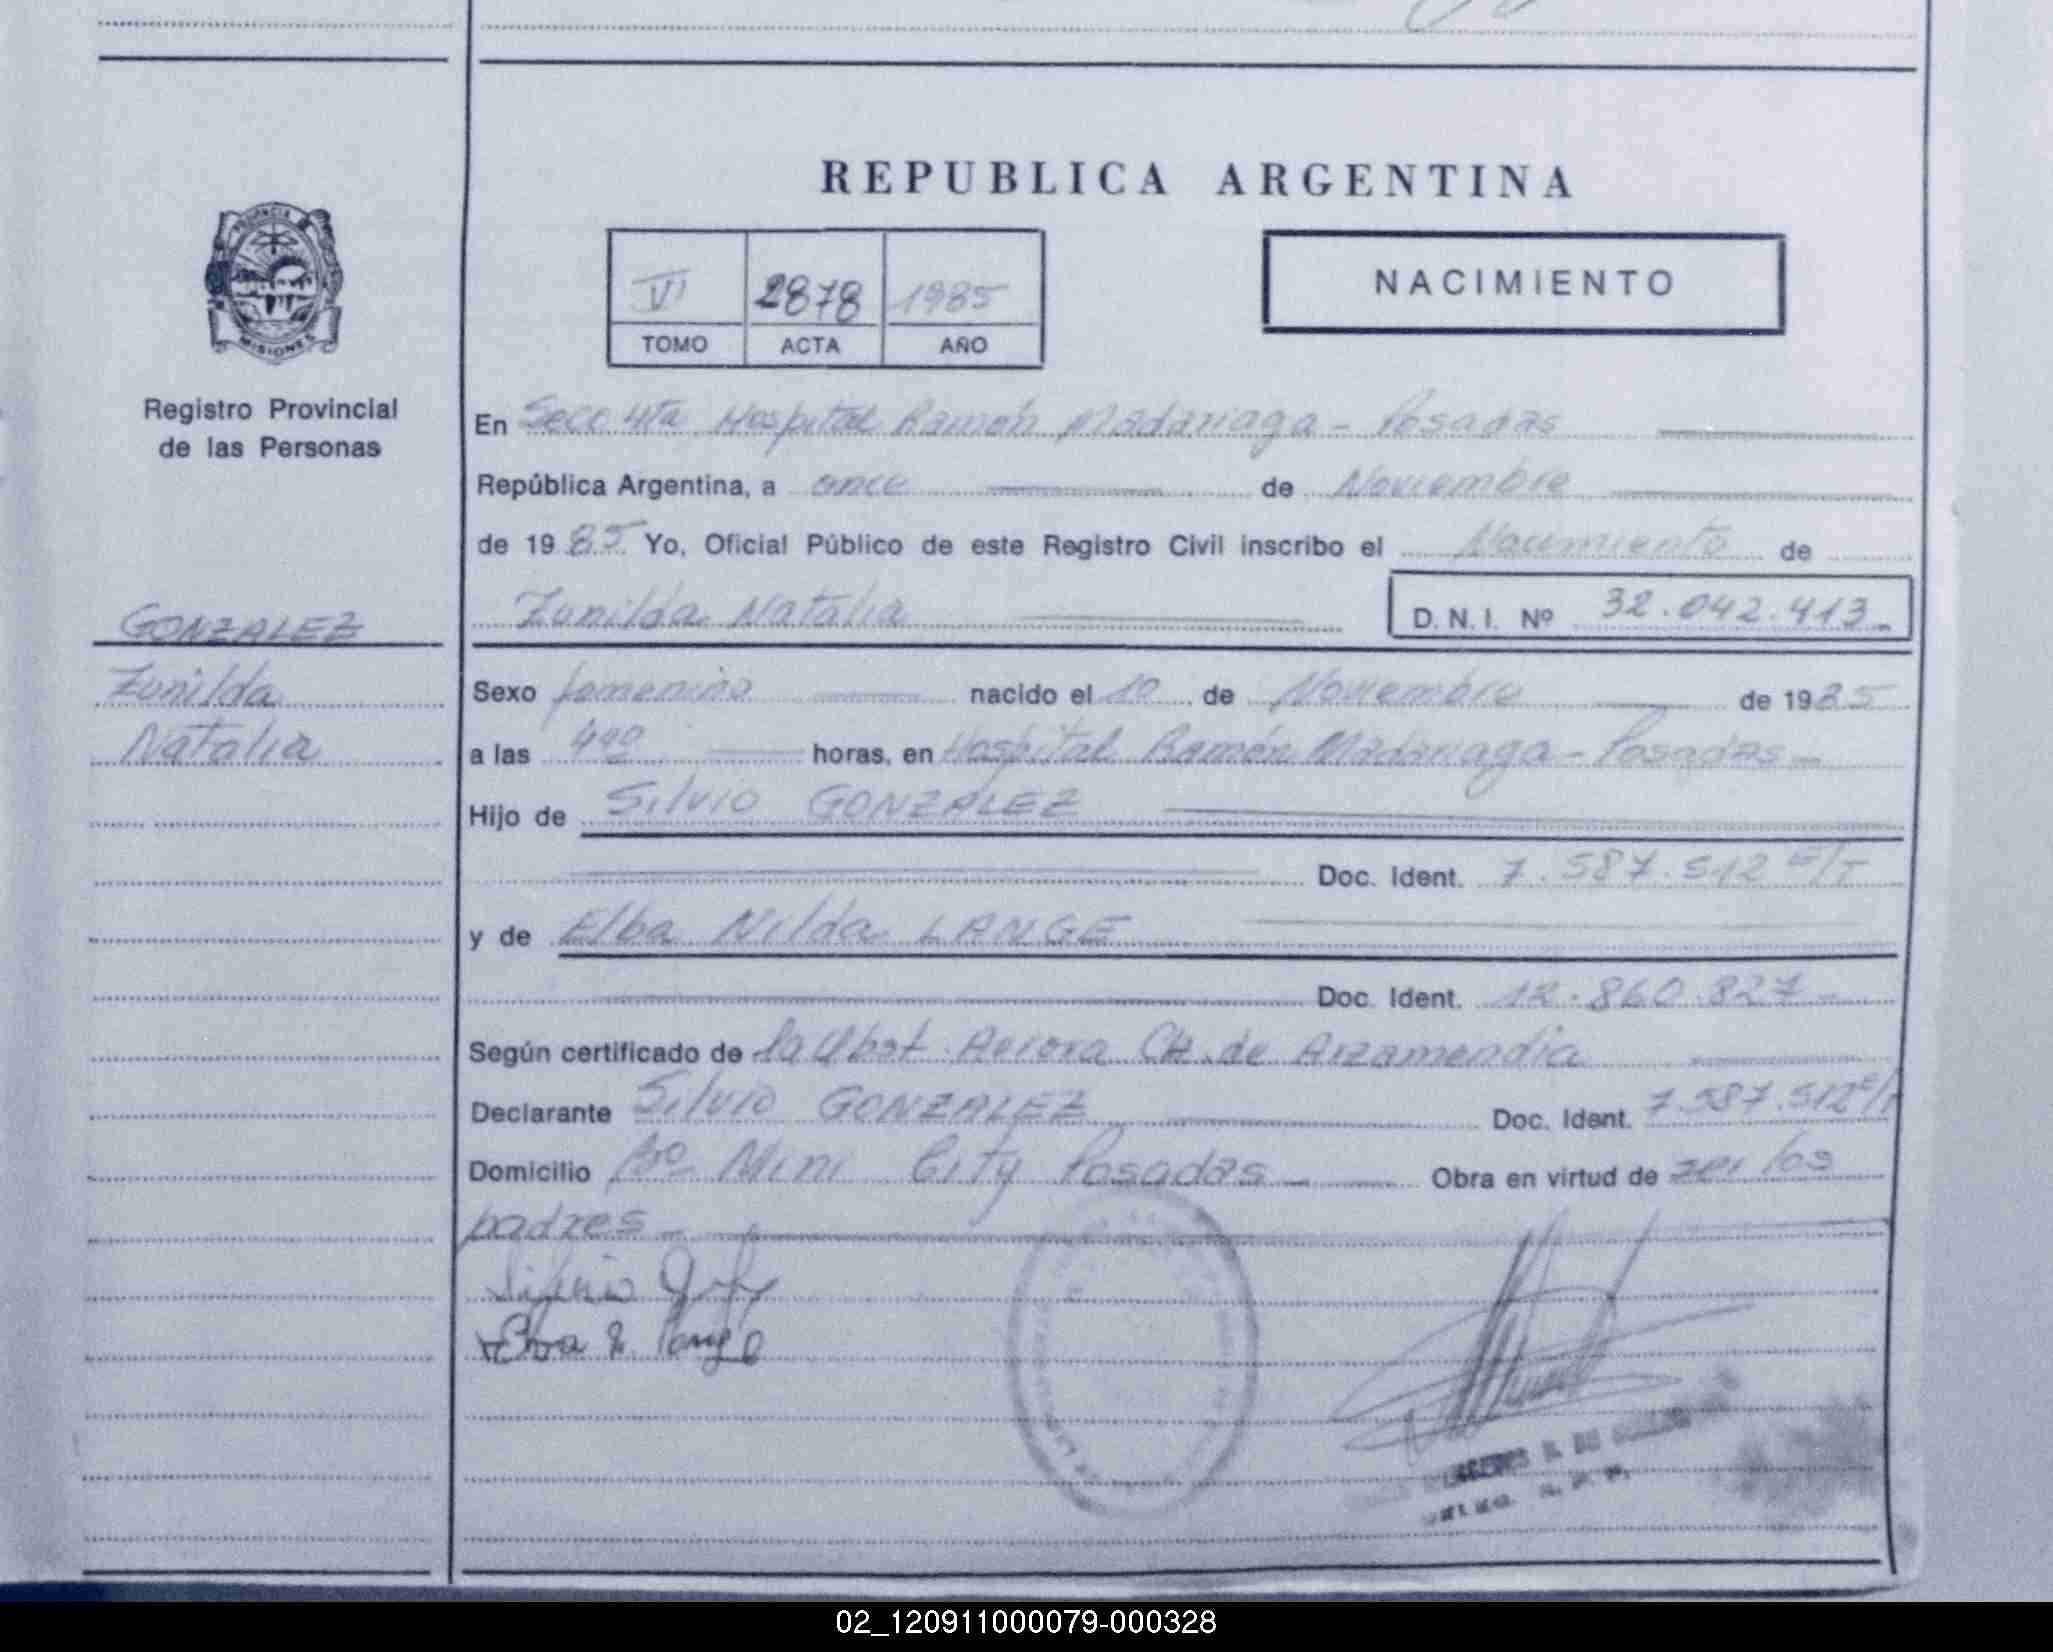 REPUBLICA ARGENTINA
PROVINCIA DE
MISIONES
Registro Provincial
de las Personas
VI 2878 1985
TOMO ACTA AÑO
NACIMIENTO
En Secc 4ta Hospital Ramón Madariaga - Posadas
República Argentina, a once de Noviembre
de 1985 Yo, Oficial Público de este Registro Civil inscribo el Nacimiento de
Zunilda Natalia D.N.I. Nº 32.042.413
GONZALEZ
Zunilda
Natalia
Sexo femenino nacido el 10 de Noviembre de 1985
a las 4 horas, en Hospital Ramón Madariaga - Posadas -
Hijo de Silvio GONZALEZ
Doc. Ident. 7.587.512 E/T
y de Elba Nilda LANGE
Doc. Ident. 12.860.827 -
Según certificado de la Obst. Aurora de Arzamendia
Declarante Silvio GONZALEZ Doc. Ident. 7.587.512 E/T
Domicilio Bº Mini City Posadas - Obra en virtud de ser los
padres -
Silvio
Elva N. Lange
02_120911000079-000328